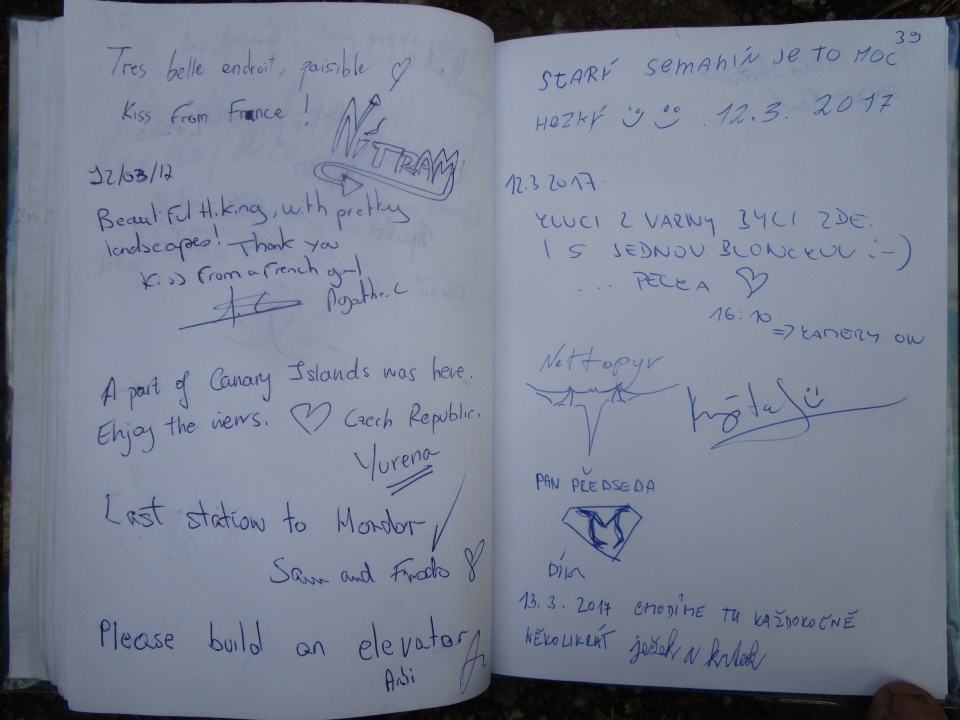 Tres belle endroit, paisible
Kiss From France !
NITRAM
12/03/17
Beautiful Hiking, with prettry
landscapes! Thank you
Kiss From a French girl
Agathe.C
A part of Canary Islands was here.
Enjoy the views. Czech Republic.
Yurena
Last station to Mordor
Sam and Frodo
Please build an elevator
Adi
39
STARÝ SEMANÍN JE TO MOC
HEZKÝ 12.3. 2017
12.3.2017
KLUCI Z VARNY BYLI ZDE.
I S JEDNOU :-)
... PECKA
16:10
=> KAMERY ON
Nettopyr
PAN PŘEDSEDA
13.3. 2017 CHODÍME TU KAŽDOROČNĚ
NĚKOLIKRÁT ježek a krtek